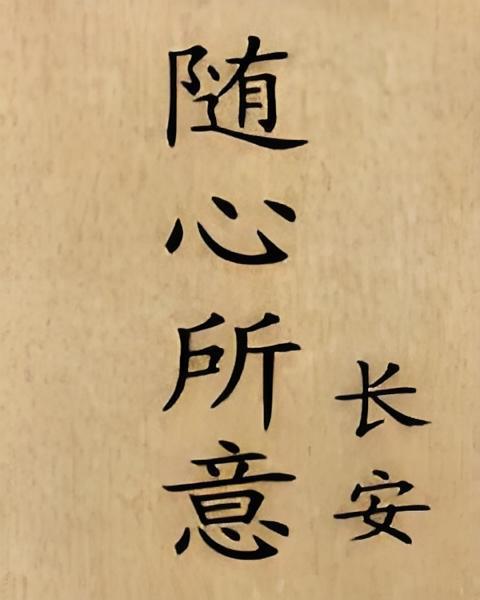 随心所意
长安